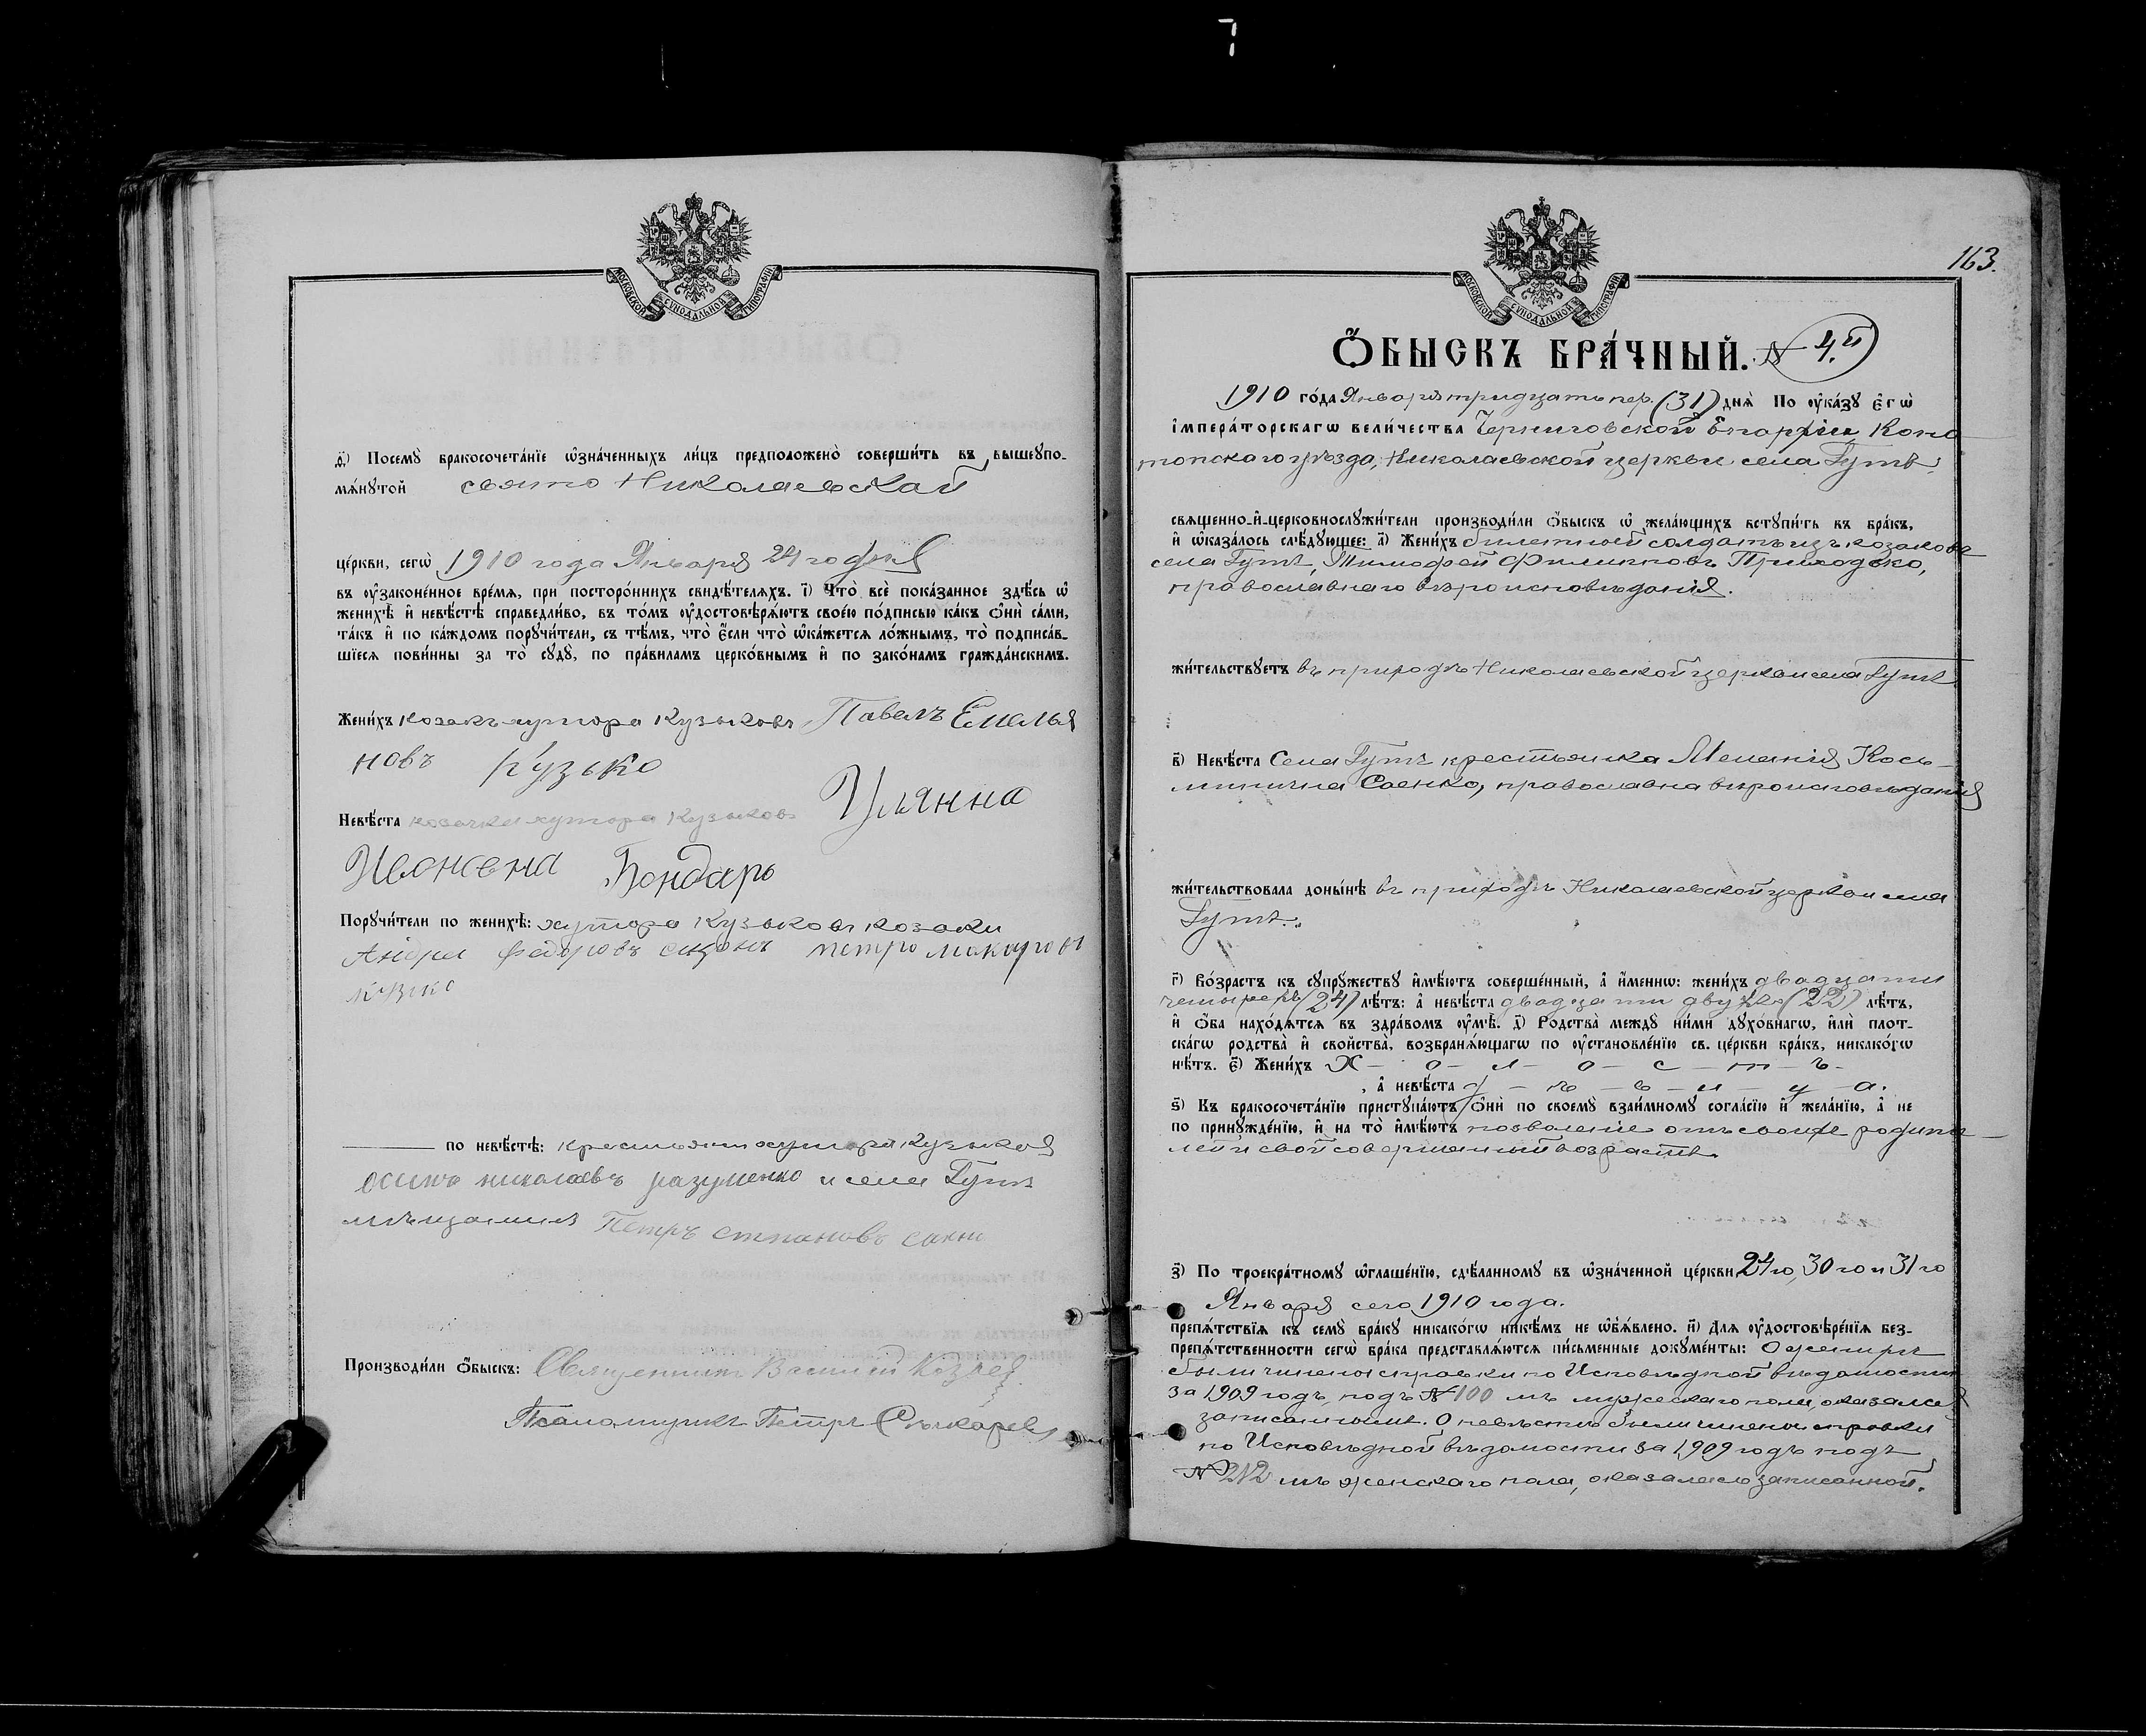 МОСКОВСКОЙ СУНОДАЛЬНОЙ ТИПОГРАФІИ
д҃) Посемꙋ бракосочета́нїе ѡ҆зна́ченныхъ ли́цъ предположено̀ соверши́ть въ вышеꙋпо-
мѧ́нꙋтой свято Николаевской
це́ркви, сегѡ̀ 1910 года Января 24 го дня
въ ᲂу҆зако́ненное вре́мѧ, при посторо́ннихъ свидѣ́телѧхъ. і҃) Что̀ всѐ пока́занное здѣ́сь ѡ҆
женихѣ̀ и҆ невѣ́стѣ справедли́во, въ то́мъ ᲂу҆достовѣрѧ́ютъ свое́ю по́дписью ка́къ ѻ҆нѝ са́ми,
та́къ и҆ по ка́ждомъ порꙋчи́тели, съ тѣ́мъ, что̀ є҆́сли что̀ ѡ҆ка́жетсѧ ло́жнымъ, то̀ подписа́в-
шїесѧ пови́нны за то̀ сꙋдꙋ̀, по пра́виламъ церко́внымъ и҆ по зако́намъ гражда́нскимъ.
Жени́хъ козакъ хутора Кузьковъ Павелъ Емелья
новъ Кузько
Невѣ́ста козачка хутора Кузьковъ Улянна
Ивановна Бондарь
Порꙋчи́тели по женихѣ̀: хутора Кузьковъ козаки
Андрей Федоровъ петро макаровъ
кузко
по невѣ́стѣ: крестьянинъ хутора Кузькова
осипъ николаевъ разуменко и села Гутъ
мѣщанинъ Петръ степановъ
Производи́ли ѻ҆́быскъ: Священникъ Василій
Псаломщикъ Петръ
МОСКОВСКОЙ СУНОДАЛЬНОЙ ТИПОГРАФІИ
163.
Ѻ҆́БЫСКЪ БРА́ЧНЫЙ. № 4.й
1910 го́да Января тридцать пер. (31) днѧ̀ По ᲂу҆ка́зꙋ є҆гѡ̀
і҆мпера́торскагѡ вели́чества Черниговской Епархіи Коно
топскаго уѣзда, Николаевской церкви села Гутъ.
свѧщенно-и҆-церковнослꙋжи́тели производи́ли ѻ҆́быскъ ѡ҆ жела́ющихъ встꙋпи́ть въ бра́къ,
и҆ ѡ҆каза́лось слѣ́дꙋющее: а҃) Жени́хъ билетный солдатъ изъ козаковъ
села Гутъ, Тимофей Филипповъ Приходько,
православнаго вѣроисповѣданія.
жи́тельствꙋетъ въ приходѣ Николаевской церкви села Гутъ
в҃) Невѣ́ста села Гутъ крестьянка Меланія Кось-
минична Саенко, православна вѣроисповѣданія
жи́тельствовала доны́нѣ въ приходѣ Николаевской церкви села
Гутъ.
г҃) Во́зрастъ къ сꙋпрꙋ́жествꙋ и҆мѣ́ютъ соверше́нный, а҆̀ и҆́менно: жени́хъ двадцати
четырехъ (24) лѣ́тъ: а҆̀ невѣ́ста двадцати двухъ (22) лѣ́тъ,
и҆ ѻ҆́ба нахо́дѧтсѧ въ здра́вомъ ᲂу҆мѣ̀. д҃) Родства̀ междꙋ̀ ни́ми дꙋхо́внагѡ, и҆лѝ плот-
ска́гѡ родства̀ и҆ сво́йства, возбранѧ́ющагѡ по ᲂу҆становле́нїю св. це́ркви бра́къ, никако́гѡ
нѣ́тъ. є҃) Жени́хъ Х - о - л - о - с - т - ъ -
, а҆̀ невѣ́ста д - ѣ - в - и - ц - а.
ѕ҃) Къ бракосочета́нїю пристꙋпа́ютъ ѻ҆нѝ по своемꙋ̀ взаи́мномꙋ согла́сїю и҆ жела́нїю, а҆̀ не
по принꙋжде́нїю, и҆ на то̀ и҆мѣ́ютъ позволеніе отъ своихъ родите-
лей и свой совершенный возрастъ.
з҃) По троекра́тномꙋ ѡ҆глаше́нїю, сдѣ́ланномꙋ въ ѡ҆зна́ченной це́ркви 24 го, 30 го и 31 го
Января сего 1910 года.
препѧ́тствїѧ къ семꙋ̀ бра́кꙋ никако́гѡ никѣ́мъ не ѡ҆б̾ѧ́влено. и҃) Длѧ ᲂу҆достовѣре́нїѧ без-
препѧ́тственности сегѡ̀ бра́ка представлѧ́ютсѧ пи́сьменные докꙋме́нты: О женихѣ
были чинены справки по Исповѣдной вѣдомости
за 1909 годъ, подъ № 100 мъ мужескаго пола, оказался
записаннымъ. О невѣстѣ были чинены справки
по Исповѣдной вѣдомости за 1909 годъ подъ
№ 212 мъ женскаго пола, оказалась записанной.